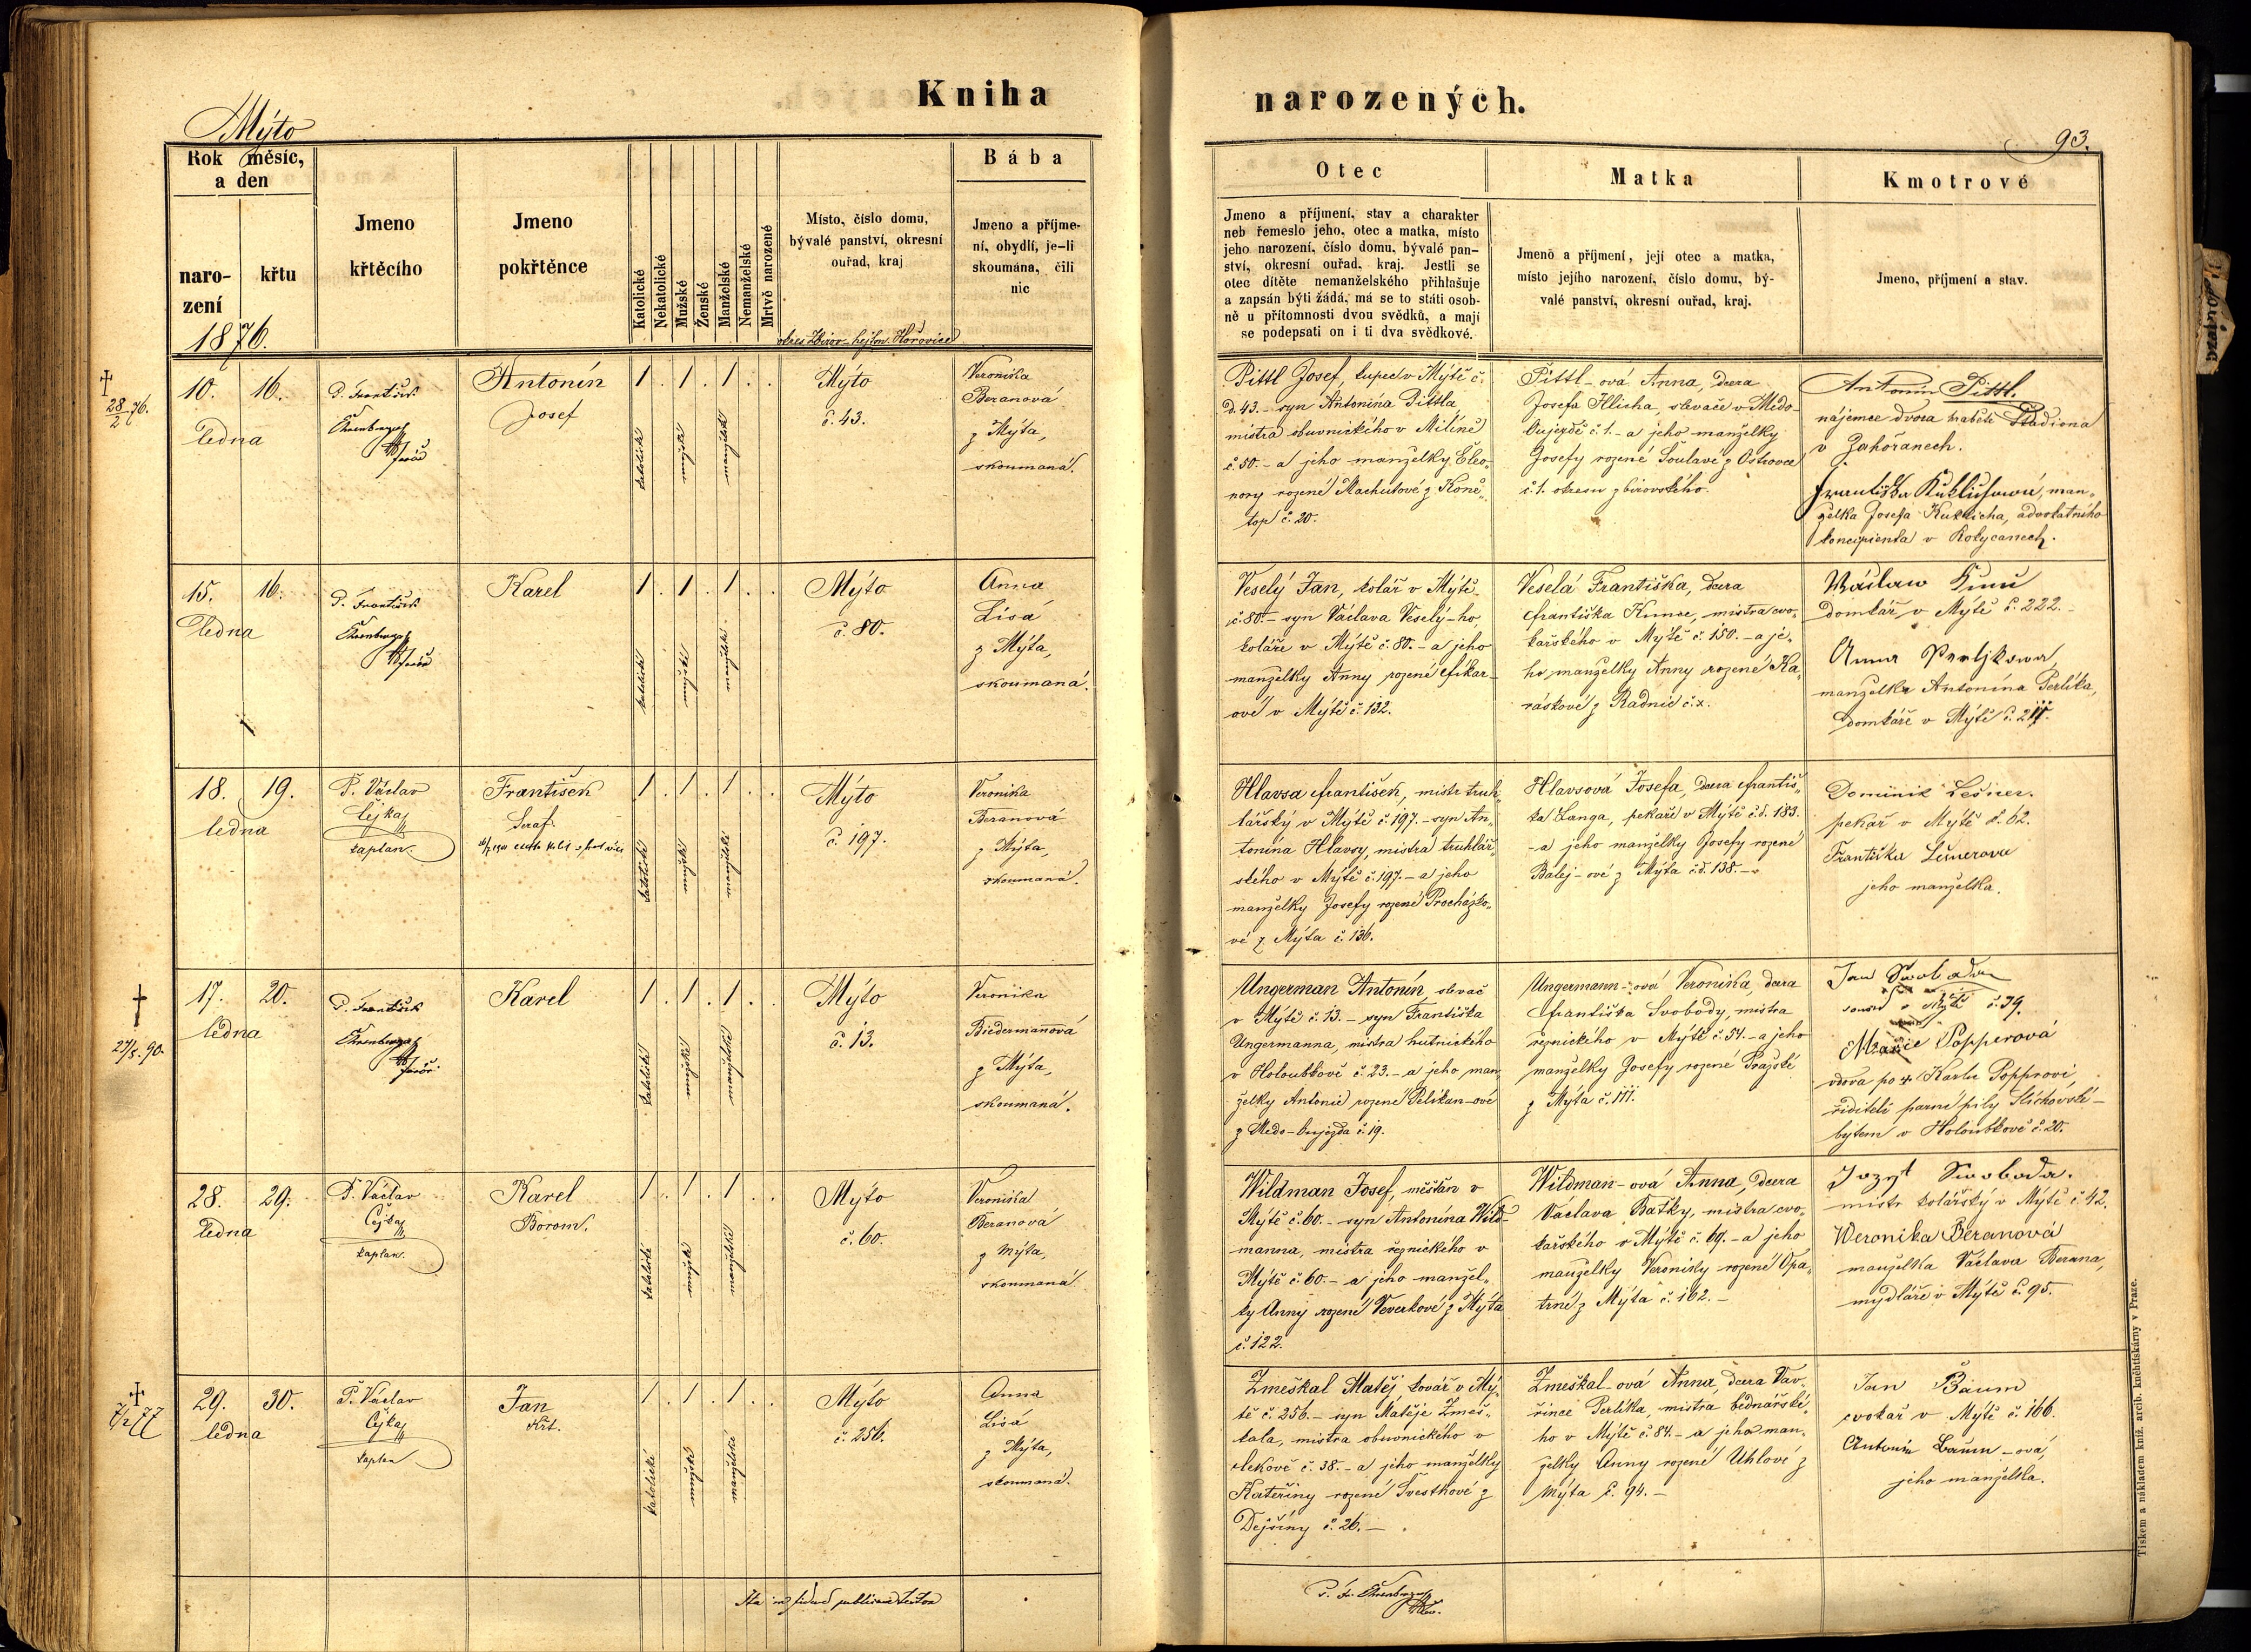 Kniha
narozených.
Mýto
93.
Rok měsíc,
a den
naro-
zení
křtu
1876.
Jmeno
křtěcího
Jmeno
pokřtěnce
Katolické
Nekatolické
Mužské
Ženské
Manželské
Nemanželské
Mrtvě narozené
Místo, číslo domu,
bývalé panství, okresní
ouřad, kraj
okres Zbirov hejtm. Hořovice
Bába
Jmeno a příjme-
ní, obydlí, je-li
skoumána, čili
nic
Otec
Jmeno a příjmení, stav a charakter
neb řemeslo jeho, otec a matka, místo
jeho narození, číslo domu, bývalé pan-
ství, okresní ouřad, kraj. Jestli se
otec dítěte nemanželského přihlašuje
a zapsán býti žádá, má se to státi osob-
ně u přítomnosti dvou svědků, a mají
se podepsati on i ti dva svědkové.
Matka
Jmeno a příjmení, její otec a matka,
místo jejího narození, číslo domu, bý-
valé panství, okresní ouřad, kraj.
Kmotrové
Jmeno, příjmení a stav.
† 28/2 76.
10. 16.
ledna
P. František
Ehrenberger
Antonín
Josef
1 . 1 . 1 . .
katolické
mužské
manželské
Mýto
č. 43.
Veronika
Beranová
z Mýta,
skoumaná.
Pittl Josef, kupec v Mýtě č.
d. 43. – syn Antonína Pittla
mistra obuvnického v Milíně
č. 50. – a jeho manželky Eleo-
nory rozené Machutové z Koně-
top č. 20.
Pittl-ová Anna, dcera
Josefa Hlicha, slevače v Medo-
Oujezdě č. 1. – a jeho manželky
Josefy rozené Soulavé z Ostrovce
č. 1. okresu zbirovského.
Antonín Pittl.
nájemce dvora hraběte Stadiona
v Zahořanech.
Františka Kuklichová, man-
želka Josefa Kuklicha, advokatního
koncipienta v Rokycanech.
15. 16.
ledna
P. František
Ehrenberger
Karel
1 . 1 . 1 . .
katolické
mužské
manželské
Mýto
č. 80.
Anna
Lisá
z Mýta,
skoumaná.
Veselý Jan, kolář v Mýtě
č. 80. – syn Václava Veselý-ho,
koláře v Mýtě č. 80. – a jeho
manželky Anny rozené Fikar-
ové v Mýtě č. 132.
Veselá Františka, dcera
Františka Kunce, mistra cvo-
kařského v Mýtě č. 150. – a je-
ho manželky Anny rozené Ka-
ráskové z Radnic č. x.
Wáclaw
domkář v Mýtě č. 222. –
Anna Perljkowa,
manželka Antonína Perlíka,
domkáře v Mýtě č.
18. 19.
ledna
P. Václav
Čejka
kaplan.
František
Seraf.
1 . 1 . 1 . .
katolické
mužské
manželské
Mýto
č. 197.
Veronika
Beranová
z Mýta,
skoumaná.
Hlavsa František, mistr truh-
lářský v Mýtě č. 197. – syn An-
tonína Hlavsy, mistra truhlář-
ského v Mýtě č. 197. – a jeho
manželky Josefy rozené Procházko-
vé z Mýta č. 136.
Hlavsová Josefa, dcera Františ-
ka Langa, pekaře v Mýtě č. d. 183.
– a jeho manželky Josefy rozené
Balej-ové z Mýta č. d. 138. –
Dominik Lešner.
pekař v Mýtě č. 62.
Františka Lešnerova
jeho manželka.
† 27/5. 90.
17. 20.
ledna
P. František
Ehrenberger
Karel
1 . 1 . 1 . .
katolické
mužské
manželské
Mýto
č. 13.
Veronika
Biedermanová
z Mýta,
skoumaná.
Ungerman Antonín, slevač
v Mýtě č. 13. – syn Františka
Ungermanna, mistra hutnického
v Holoubkově č. 23. – a jeho man-
želky Antonie rozené Pelikan-ové
z Medo-Oujezda č. 19.
Ungermann-ová Veronika, dcera
Františka Svobody, mistra
řeznického v Mýtě č. 54. – a jeho
manželky Josefy rozené Pražské
z Mýta č. 111.
Jan Swoboda
v Mýtě č. 39.
Marie Popperová
vdova po † Karlu Popprovi,
řiditeli parní pily
bytem v Holoubkově č. 20.
28. 29.
ledna
P. Václav
Čejka
kaplan.
Karel
Borom.
1 . 1 . 1 . .
katolické
mužské
manželské
Mýto
č. 60.
Veronika
Beranová
z Mýta,
skoumaná.
Wildman Josef, měšťan v
Mýtě č. 60. – syn Antonína Wild-
manna, mistra řeznického v
Mýtě č. 60. – a jeho manžel-
ky Anny rozené Veverkové z Mýta
č. 122.
Wildman-ová Anna, dcera
Václava Bašky, mistra cvo-
kařského v Mýtě č. 69. – a jeho
manželky Veroniky rozené Opa-
trné z Mýta č. 162. –
Jozef Swoboda.
mistr kolářský v Mýtě č. 42.
Weronika Beranová
manželka Václava Berana,
mydláře v Mýtě č. 95.
† 7/2 77
29. 30.
ledna
P. Václav
Čejka
kaplan
Jan
Křt.
1 . 1 . 1 . .
katolické
mužské
manželské
Mýto
č. 256.
Anna
Lisá
z Mýta,
skoumaná.
Zmeškal Matěj, kovář v Mý-
tě č. 256. – syn Matěje Zmeš-
kala, mistra obuvnického v
č. 38. – a jeho manželky
Kateřiny rozené Švestkové z
Dejšiny č. 26. –
Zmeškal-ová Anna, dcera Vav-
řince Perlíka, mistra bednářské-
ho v Mýtě č. 84. – a jeho man-
želky Anny rozené Uhlové z
Mýta č. 94. –
Jan Baum
cvokař v Mýtě č. 166.
Antonia Baum-ová
jeho manželka.
Ita in fidem publicam testor
P. Fr. Ehrenberger
Tiskem a nákladem kníž. arcib. knihtiskárny v Praze.